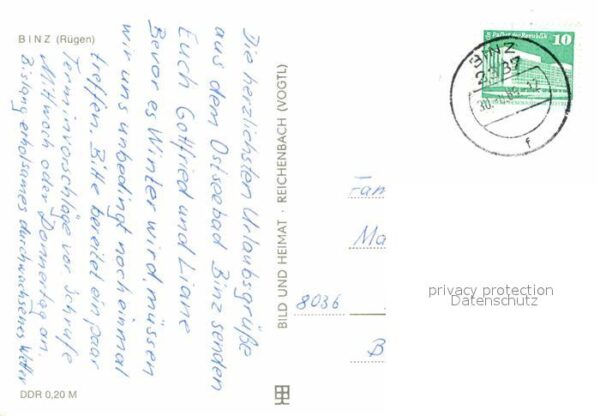 BINZ (Rügen)
Die herzlichsten Urlaubsgrüße
aus dem Ostseebad Binz senden
Euch Gottfried und Liane
Bevor es Winter wird, müssen
wir uns unbedingt noch einmal
treffen. Bitte bereitet ein paar
Terminvorschläge vor. Ich rufe
Mittwoch oder Donnerstag an.
Bislang erholsames durchwachsenes Wetter
DDR 0,20 M
BILD UND HEIMAT · REICHENBACH (VOGTL)
Palast der Republik 10
BINZ
2337
f
Fam
Ma
8036
B
privacy protection
Datenschutz